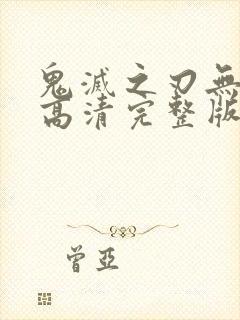 鬼滅之刃無
高清完整版
曾亞